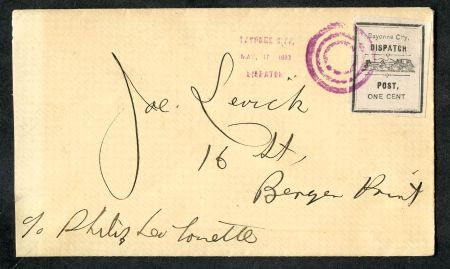 BAYONNE CITY,
MAY 17 1883
DISPATCH
Bayonne City,
DISPATCH
POST,
ONE CENT
Joe. Levick
16 St,
Bergen Point
c/o Philip